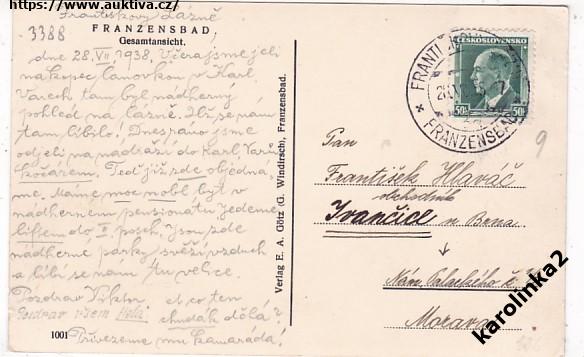 https://www.auktiva.cz
Františkovy Lázně
3388
FRANZENSBAD
Gesamtansicht.
dne 28. VII. 1938. Včera jsme jeli
na kopec lanovkou v Karl.
Varech tam byl nádherný
pohled na lázně. Což se nám
tam líbilo! Dnes ráno jsme
odjeli na nádraží do Karl. Varů
kočárem. Teď již zde
me. Máme moc nobl byt v
nádherném pensionátu jedeme
liftem do II posch. Jsou zde
nádherné parky svěží vzduch
a líbí se nám tu velice.
Pozdrav Viktor. a co ten
Pozdrav všem Hela chudák dělá?
1001 Přivezeme mu kamaráda!
Verlag E. A. Götz (G. Windirsch), Franzensbad.
ČESKOSLOVENSKO
50h 50h
FRANZENSBAD
9
Pan
František Hlaváč
obchodník
Ivančice u Brna
Nám. Palackého č.
Morava
karolinka2